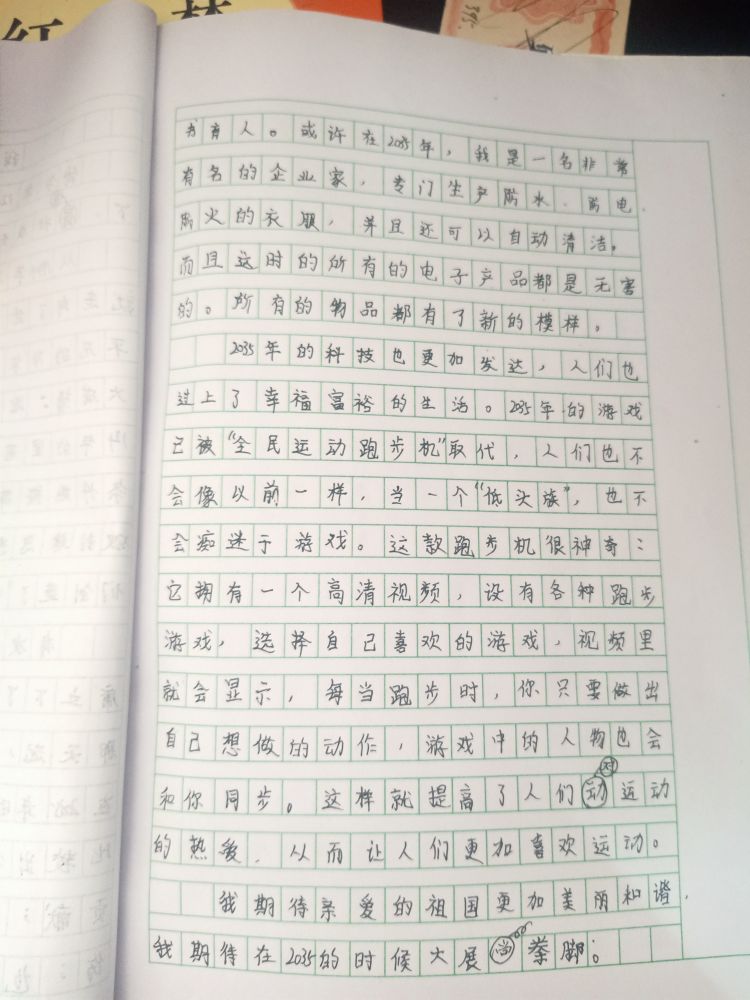 红 楼
书有人。或许在2035年，我是一名非常
有名的企业家，专门生产防水、防电、
防火的衣服，并且还可以自动清洁，
而且这时的所有的电子产品都是无害
的。所有的物品都有了新的模样。
2035年的科技也更加发达，人们也
过上了幸福富裕的生活。2035年的游戏
已被“全民运动跑步机”取代，人们也不
会像以前一样，当一个“低头族”，也不
会痴迷于游戏。这款跑步机很神奇：
它拥有一个高清视频，设有各种跑步
游戏，选择自己喜欢的游戏，视频里
就会显示，每当跑步时，你只要做出
自己想做的动作，游戏中的人物也会
对
和你同步。这样就提高了人们动运动
的热爱，从而让人们更加喜欢运动。
我期待亲爱的祖国更加美丽和谐，
我期待在2035的时候大展尚拳脚；